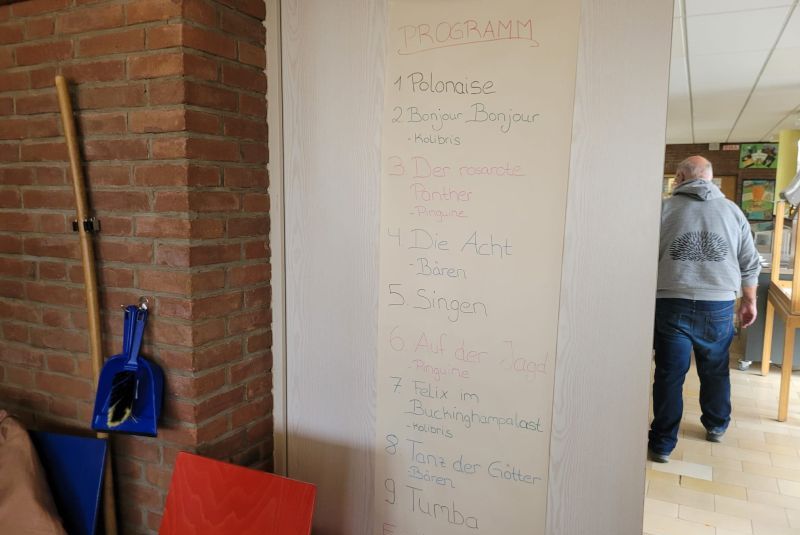 PROGRAMM
1 Polonaise
2 Bonjour Bonjour
- Kolibris
3. Der rosarote
Panther
- Pinguine
4. Die Acht
- Bären
5. Singen
6. Auf der Jagd
- Pinguine
7. Felix im
Buckinghampalast
- Kolibris
8 Tanz der Götter
- Bären
9 Tumba